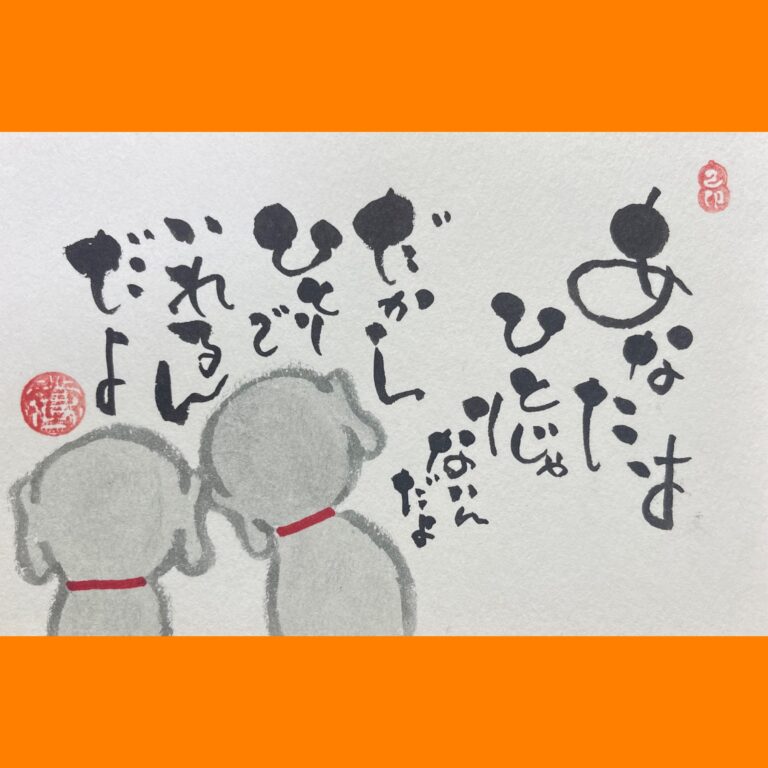 あなたは
ひとりじゃ
ないん
だよ
だから
ひとりで
いれるん
だよ